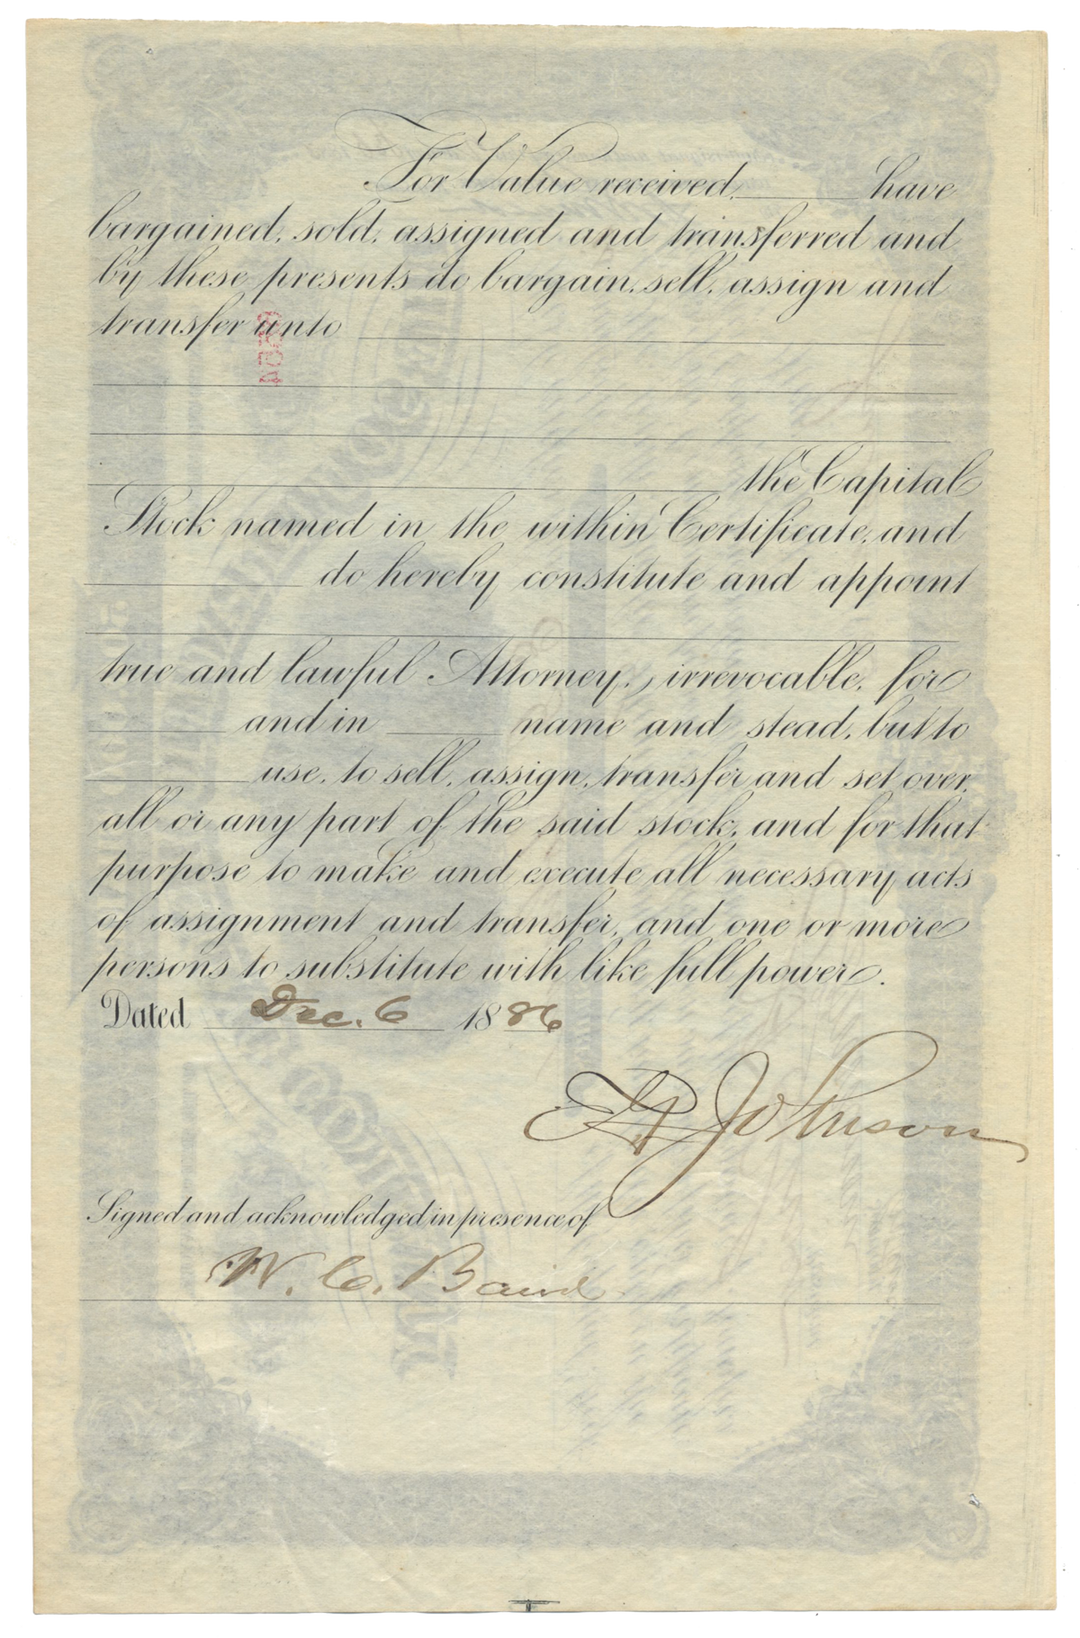 For Value received, ____ have
bargained, sold, assigned and transferred and
by these presents do bargain, sell, assign and
transfer unto
the Capital
Stock named in the within Certificate, and
do hereby constitute and appoint
true and lawful Attorney, irrevocable, for
and in ____ name and stead, but to
use, to sell, assign, transfer and set over,
all or any part of the said stock, and for that
purpose to make and execute all necessary acts
of assignment and transfer, and one or more
persons to substitute with like full power.
Dated Dec. 6 1886
Johnson
Signed and acknowledged in presence of
W. C. Baird